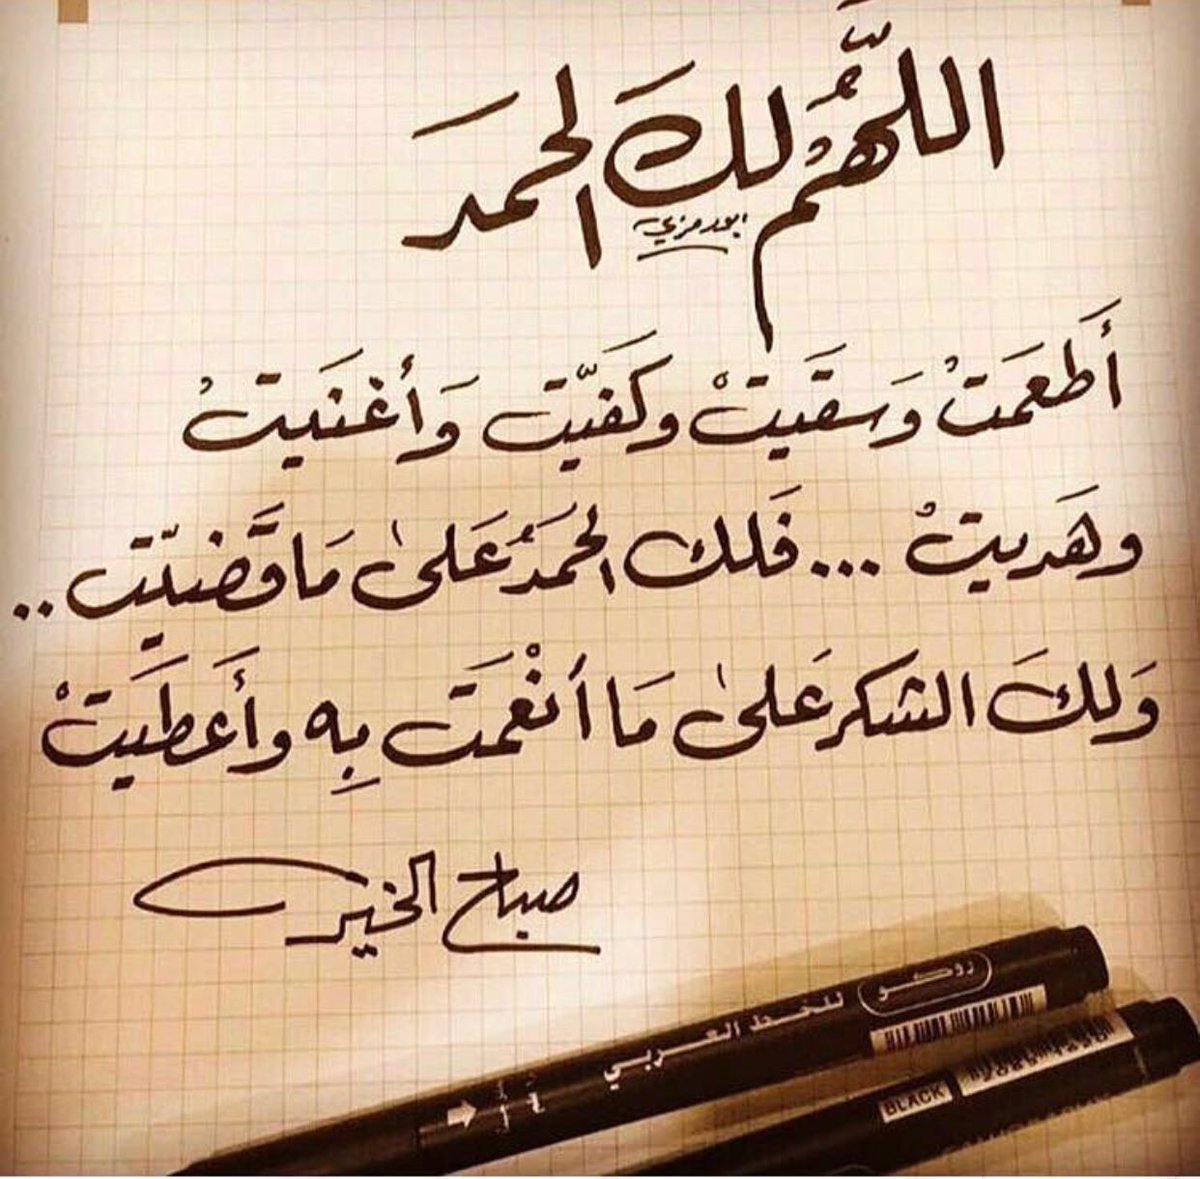 اللّهُم لكَ الحمدَ
ابورمزي
أَطعَمتْ وَسقَيتْ وكَفيّت وَأغنَيتْ
وهَديتْ ... فَلك الحمَدُ عَلىٰ مَا قَضيّت ..
وَلكَ الشكر عَلىٰ مَا أنْعَمَت بِه وأَعطَيتْ
صباح الخير
روكو
للخط العربي
BLACK